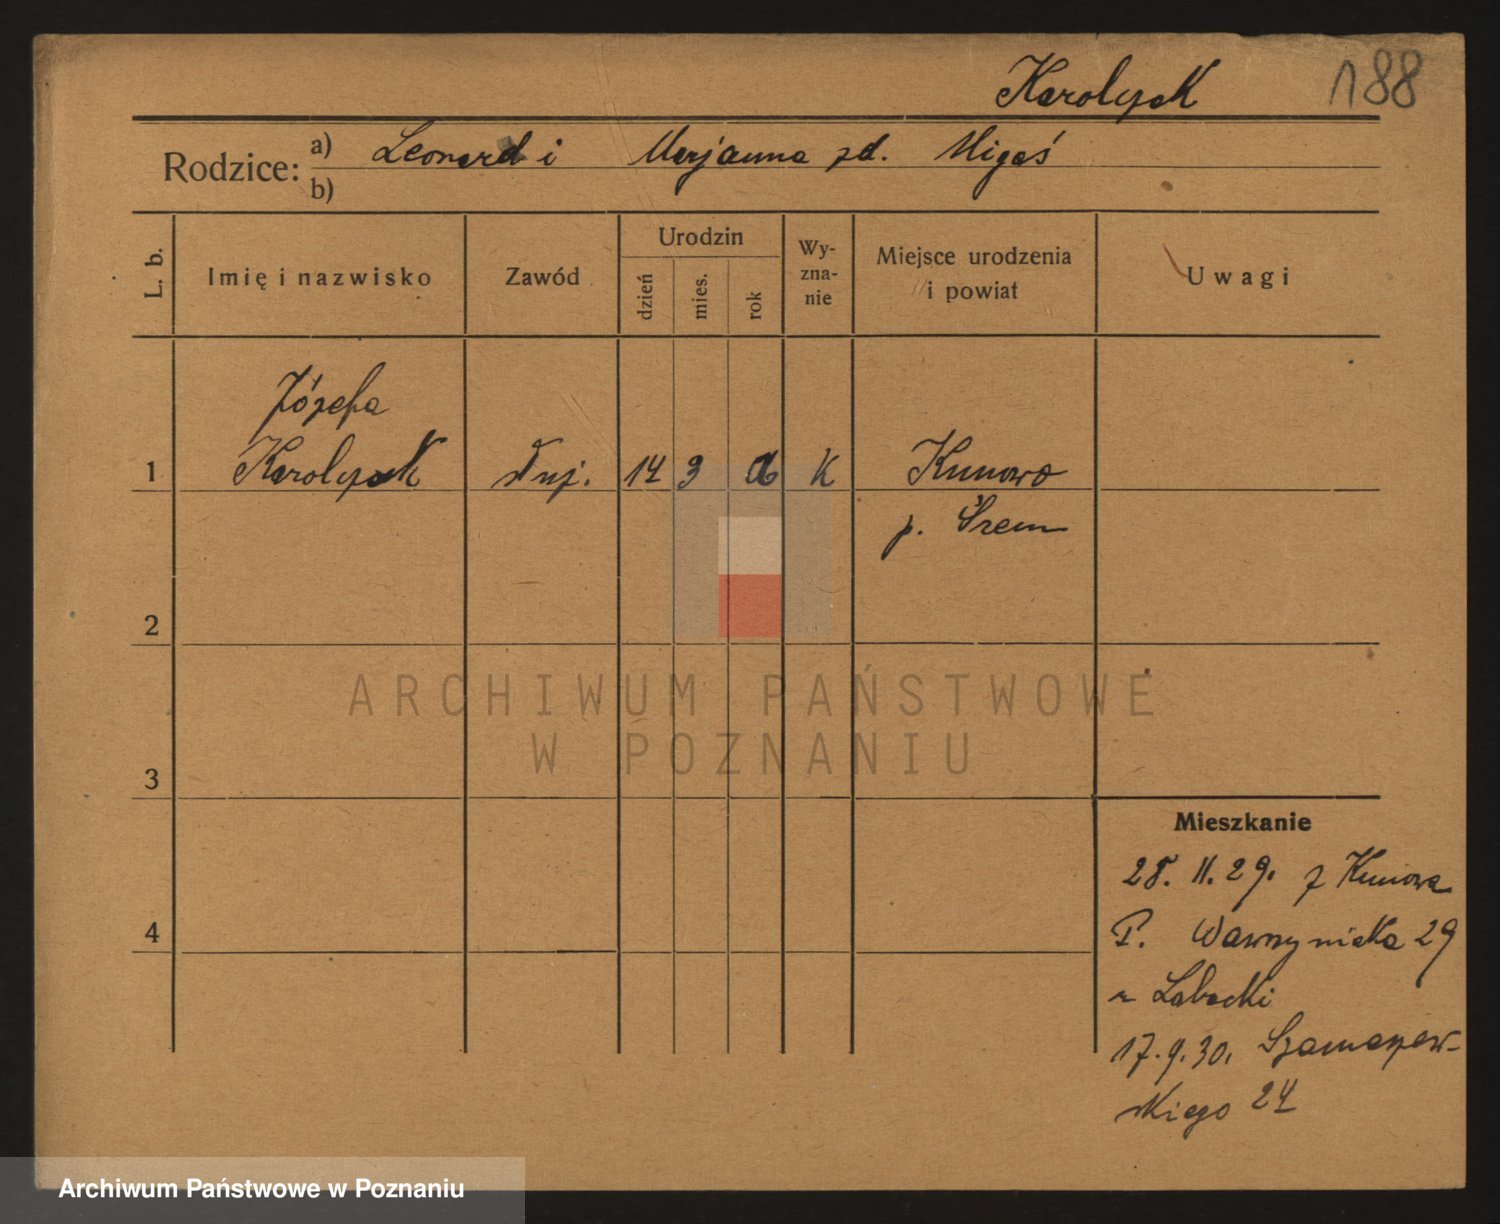 Karolczak 188
Rodzice: a) Leonard i Marjanna zd. Migoś
b)
L. b. Imię i nazwisko Zawód Urodzin dzień mies. rok Wy-zna-nie Miejsce urodzenia i powiat Uwagi
Józefa
1 Karolczak służ. 14 3 K Kunowo
p. Śrem
2
ARCHIWUM PAŃSTWOWE
W POZNANIU
3
Mieszkanie
28. 11. 29. z Kunowa
4 P. Wawrzyniaka 29
u Labocki
17. 9. 30. Szamarzew-
skiego 24
Archiwum Państwowe w Poznaniu